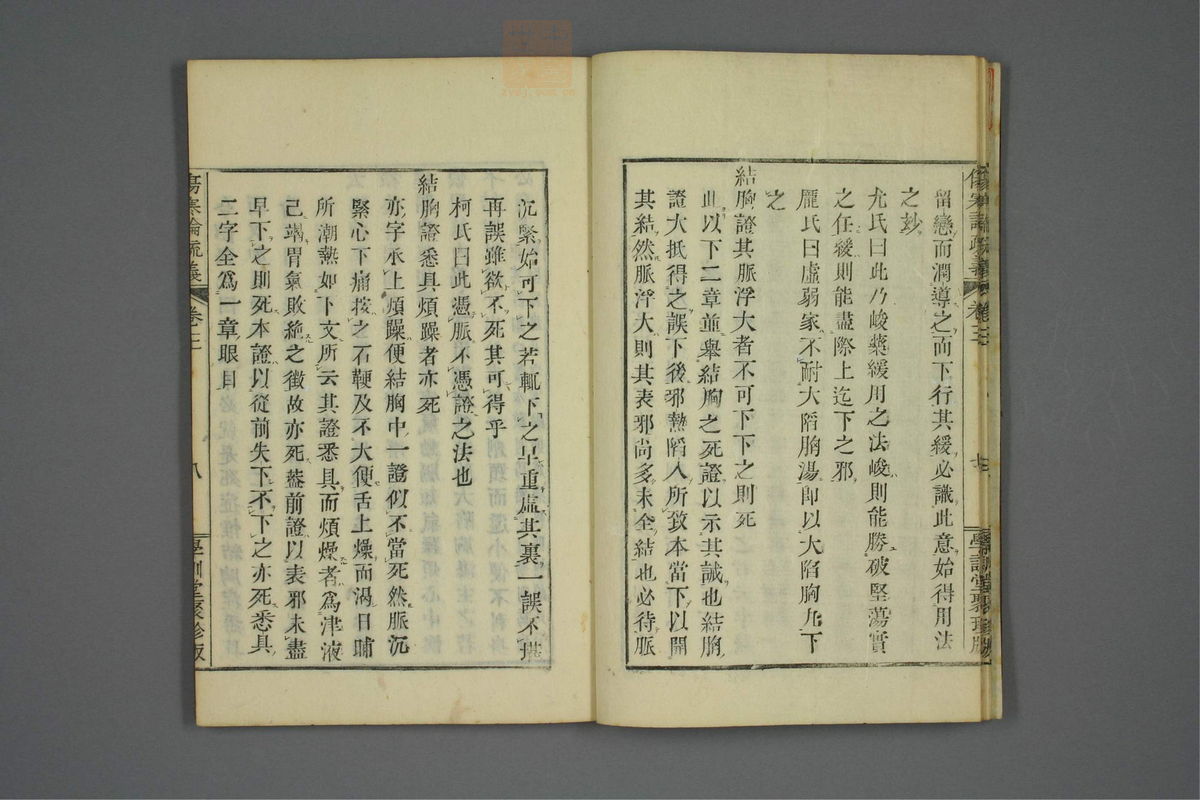 留戀而潤導之而下行其緩必識此意始得用法
之妙
尤氏曰此乃峻藥緩用之法峻則能勝破堅蕩實
之任緩則能盡際上迄下之邪
龐氏曰虛弱家不耐大陷胸湯即以大陷胸丸下
之
結胸證其脈浮大者不可下下之則死
此以下二章並舉結胸之死證以示其誡也結胸
證大抵得之誤下後邪熱陷入所致本當下以開
其結然脈浮大則其表邪尚多未全結也必待脈
傷寒論疏義
卷三
七
學訓堂聚珍版
沉緊始可下之若輒下之早重虛其裏一誤不堪
再誤雖欲不死其可得乎
柯氏曰此憑脈不憑證之法也
結胸證悉具煩躁者亦死
亦字承上煩躁便結胸中一證似不當死然脈沉
緊心下痛按之石鞕及不大便舌上燥而渴日晡
所潮熱如下文所云其證悉具而煩燥者爲津液
己竭胃氣敗絶之徵故亦死葢前證以表邪未盡
早下之則死本證以從前失下不下之亦死悉具
二字全爲一章眼目
傷寒論疏義
卷三
八
學訓堂聚珍版